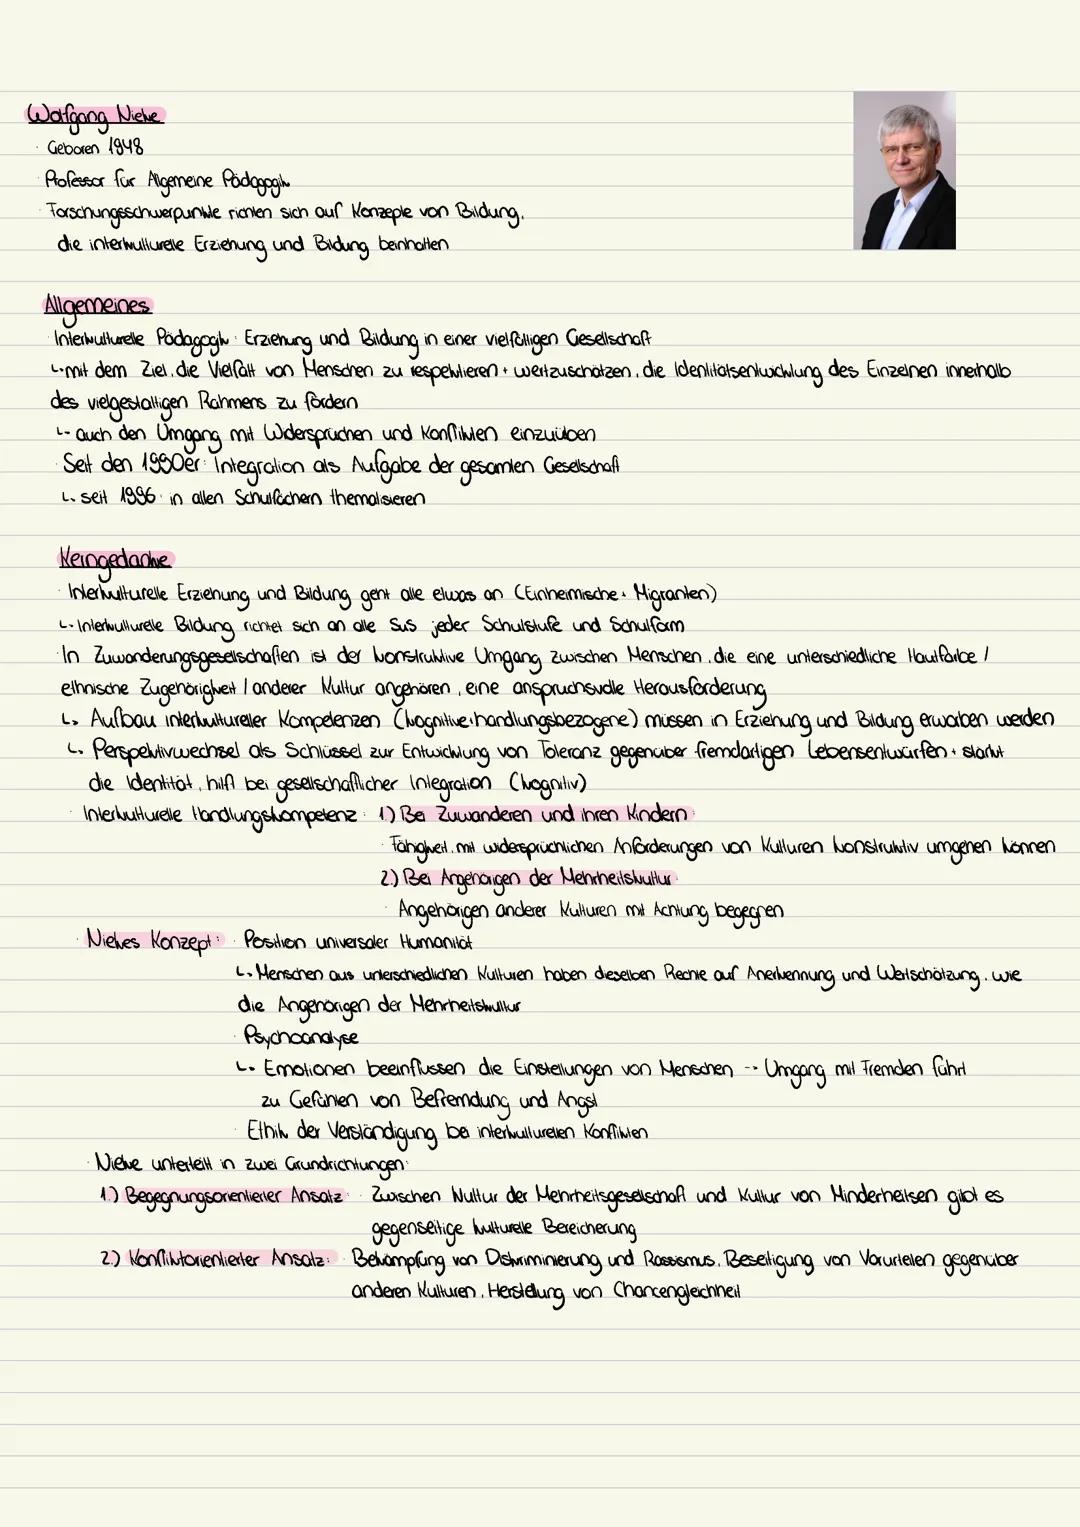 Wolfgang Nieke
· Geboren 1948
· Professor für Allgemeine Pädagogik
· Forschungsschwerpunkte richten sich auf Konzepte von Bildung,
die interkulturelle Erziehung und Bildung beinhalten
Allgemeines
· Interkulturelle Pädagogik: Erziehung und Bildung in einer vielfältigen Gesellschaft
↳ mit dem Ziel, die Vielfalt von Menschen zu respektieren + wertzuschätzen, die Identitätsentwicklung des Einzelnen innerhalb
des vielgestaltigen Rahmens zu fördern
↳ auch den Umgang mit Widersprüchen und Konflikten einzuüben
· Seit den 1990er: Integration als Aufgabe der gesamten Gesellschaft
↳ seit 1996: in allen Schulfächern thematisieren
Kerngedanke
· Interkulturelle Erziehung und Bildung geht alle etwas an (Einheimische + Migranten)
↳ Interkulturelle Bildung richtet sich an alle SuS jeder Schulstufe und Schulform
· In Zuwanderungsgesellschaften ist der konstruktive Umgang zwischen Menschen, die eine unterschiedliche Hautfarbe /
ethnische Zugehörigkeit / anderer Kultur angehören, eine anspruchsvolle Herausforderung
↳ Aufbau interkultureller Kompetenzen (kognitive + handlungsbezogene) müssen in Erziehung und Bildung erworben werden
↳ Perspektivwechsel als Schlüssel zur Entwicklung von Toleranz gegenüber fremdartigen Lebensentwürfen + stärkt
die Identität, hilft bei gesellschaftlicher Integration (kognitiv)
· Interkulturelle Handlungskompetenz: 1.) Bei Zuwanderen und ihren Kindern:
· Fähigkeit, mit widersprüchlichen Anforderungen von Kulturen konstruktiv umgehen können
2.) Bei Angehörigen der Mehrheitskultur:
· Angehörigen anderer Kulturen mit Achtung begegnen
· Niekes Konzept: · Position universaler Humanität
↳ Menschen aus unterschiedlichen Kulturen haben dieselben Rechte auf Anerkennung und Wertschätzung, wie
die Angehörigen der Mehrheitskultur
· Psychoanalyse
↳ Emotionen beeinflussen die Einstellungen von Menschen --> Umgang mit Fremden führt
zu Gefühlen von Befremdung und Angst
· Ethik der Verständigung bei interkulturellen Konflikten
· Nieke unterteilt in zwei Grundrichtungen:
1.) Begegnungsorientierter Ansatz: · Zwischen Kultur der Mehrheitsgesellschaft und Kultur von Minderheitsen gibt es
gegenseitige kulturelle Bereicherung
2.) Konfliktorientierter Ansatz: · Bekämpfung von Diskriminierung und Rassismus, Beseitigung von Vorurteilen gegenüber
anderen Kulturen, Herstellung von Chancengleichheit